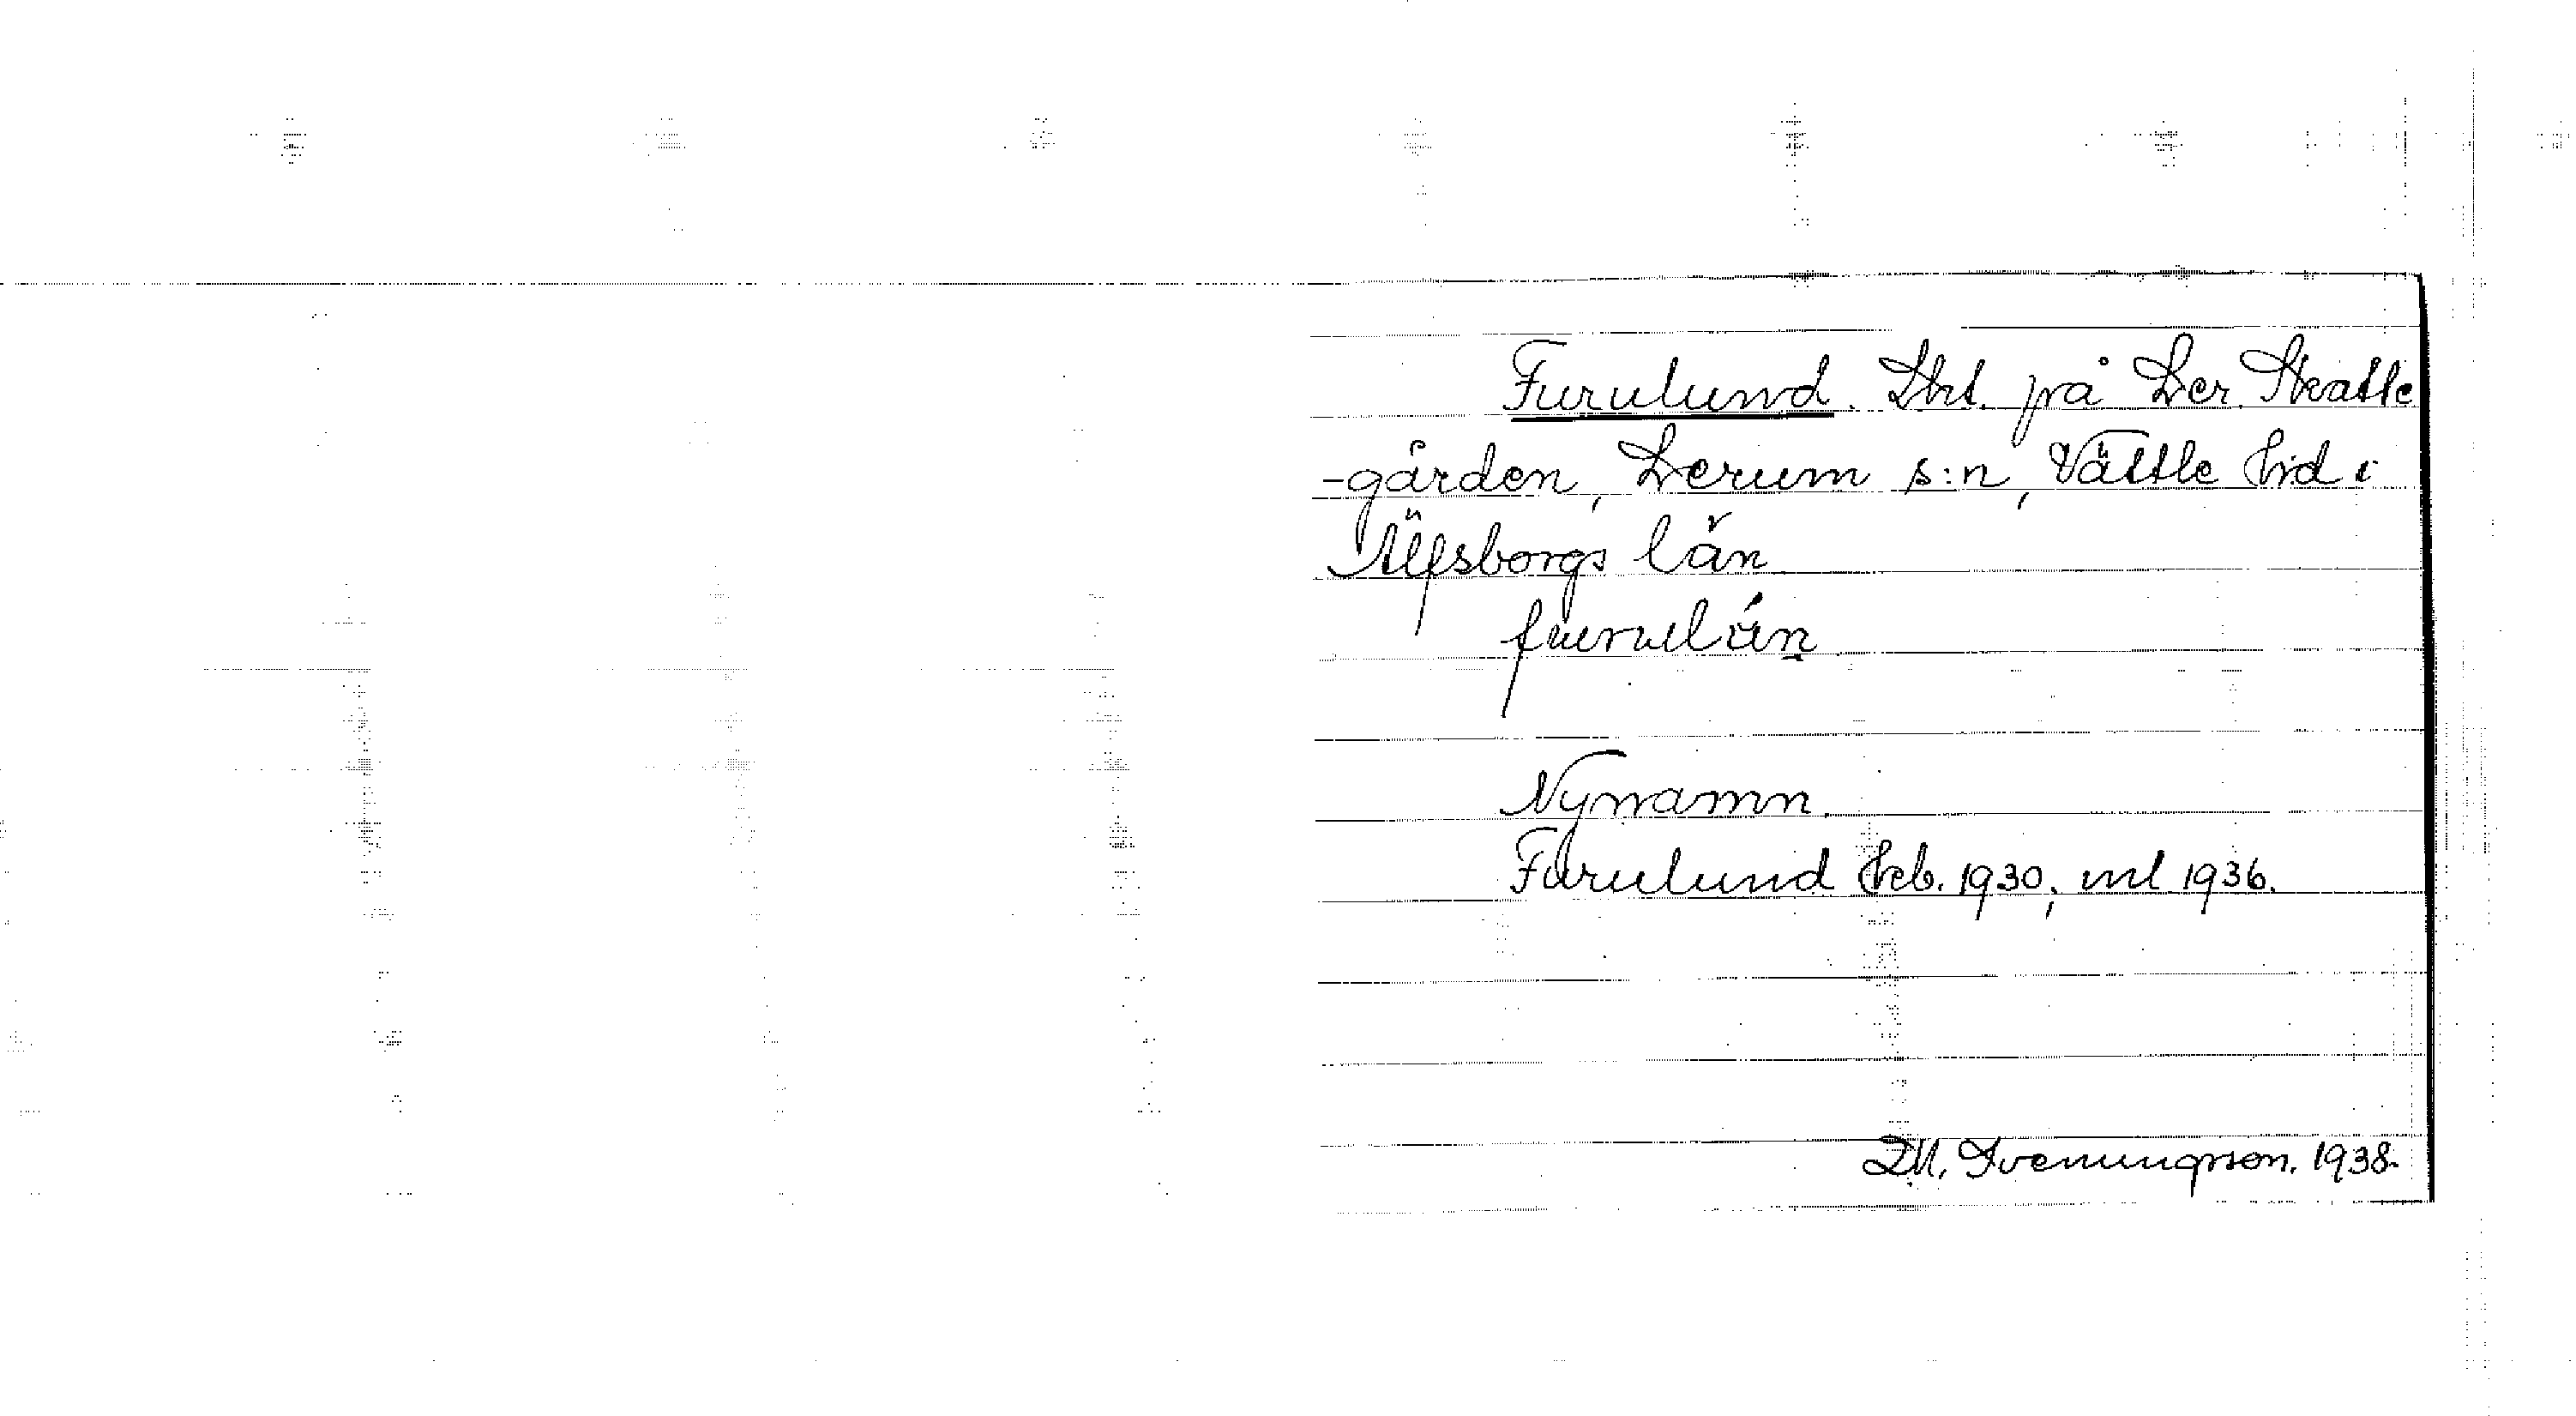 Furulund. Lht. på Ler. Skatte
-gården, Lerum s:n, Vättle hd i
Älfsborgs län
furulún̥
Nynamn
Furulund Heb. 1930, ml 1936.
D.M. Svenungsson. 1938.